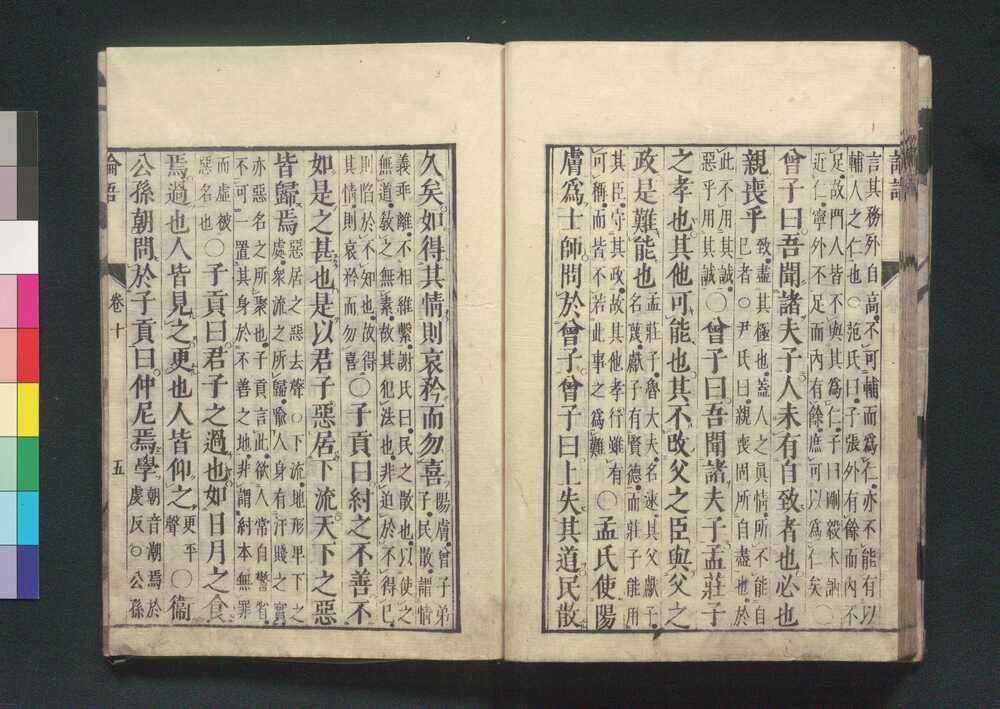 論語
言其務外自高不可輔而爲仁亦不能有以
輔人之仁也○范氏曰子張外有餘而內不
足故門人皆不與其爲仁子曰剛毅木訥
近仁寧外不足而內有餘庶可以爲仁矣○
曾子曰吾聞諸夫子人未有自致者也必也
親喪乎致盡其極也蓋人之眞情所不能自
已者○尹氏曰親喪固所自盡也於
此不用其誠
惡乎用其誠○曾子曰吾聞諸夫子孟莊子
之孝也其他可能也其不改父之臣與父之
政是難能也孟莊子魯大夫名速其父獻子
名蔑獻子有賢德而莊子能用
其臣守其政故其他孝行雖有
可稱而皆不若此事之爲難○孟氏使陽
膚爲士師問於曾子曾子曰上失其道民散
久矣如得其情則哀矜而勿喜陽膚曾子弟
子民散謂情
義乖離不相維繫謝氏曰民之散也以使之
無道敎之無素故其犯法也非迫於不得已
則陷於不知也故得
其情則哀矜而勿喜○子貢曰紂之不善不
如是之甚也是以君子惡居下流天下之惡
皆歸焉惡居之惡去聲○下流地形卑下之
處衆流之所歸喩人身有汙賤之實
亦惡名之所聚也子貢言此欲人常自警省
不可一置其身於不善之地非謂紂本無罪
而虛被
惡名也○子貢曰君子之過也如日月之食
焉過也人皆見之更也人皆仰之更平
聲○衞
公孫朝問於子貢曰仲尼焉學朝音潮焉於
虔反○公孫
論語 卷十 五